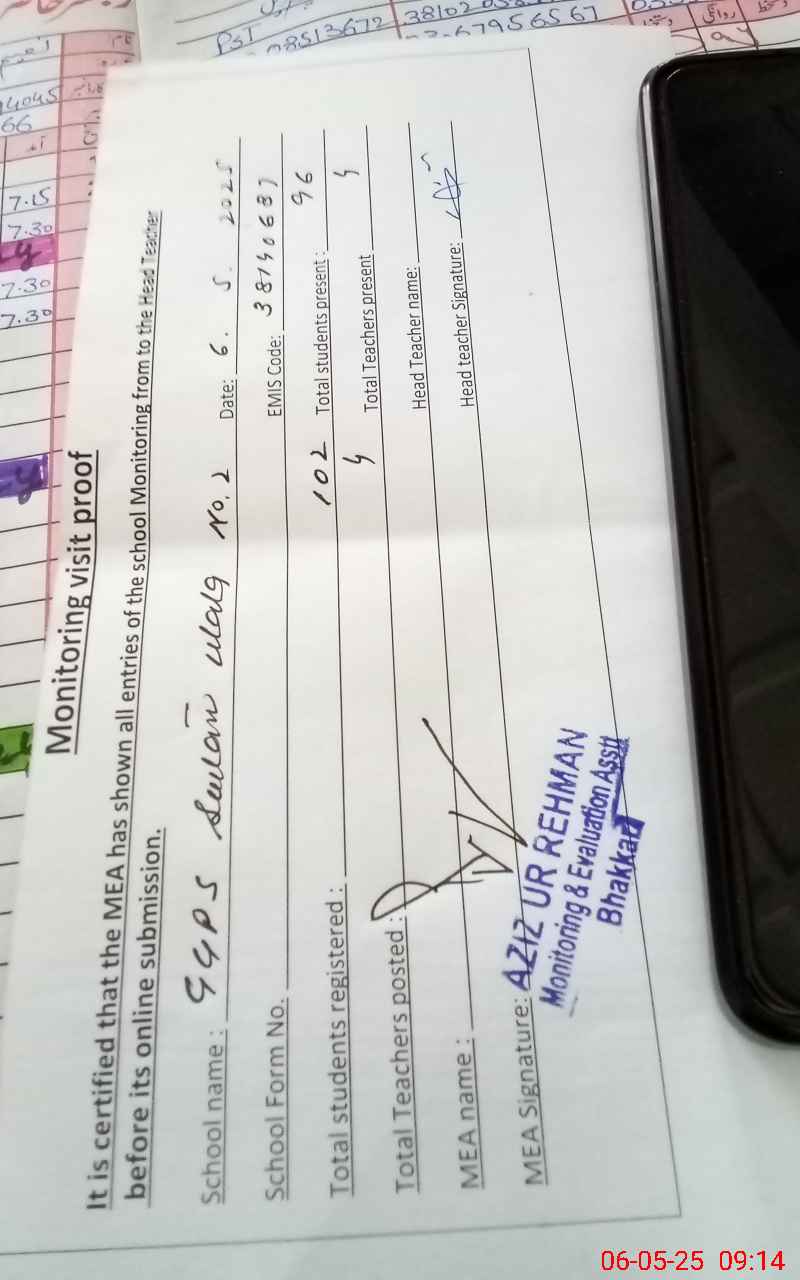 Monitoring visit proof
It is certified that the MEA has shown all entries of the school Monitoring from to the Head Teacher
before its online submission.
School name : GGPS No. 2 Date: 6. 5. 2025
School Form No. EMIS Code: 38140687
Total students registered : 102 Total students present : 96
Total Teachers posted : 4 Total Teachers present 4
MEA name : Head Teacher name:
MEA Signature: Head teacher Signature:
AZIZ UR REHMAN
Monitoring & Evaluation Asstt
Bhakkar
PST
08513672
38102
67956567
4045
66
7.15
7.30
7.30
7.30
06-05-25 09:14